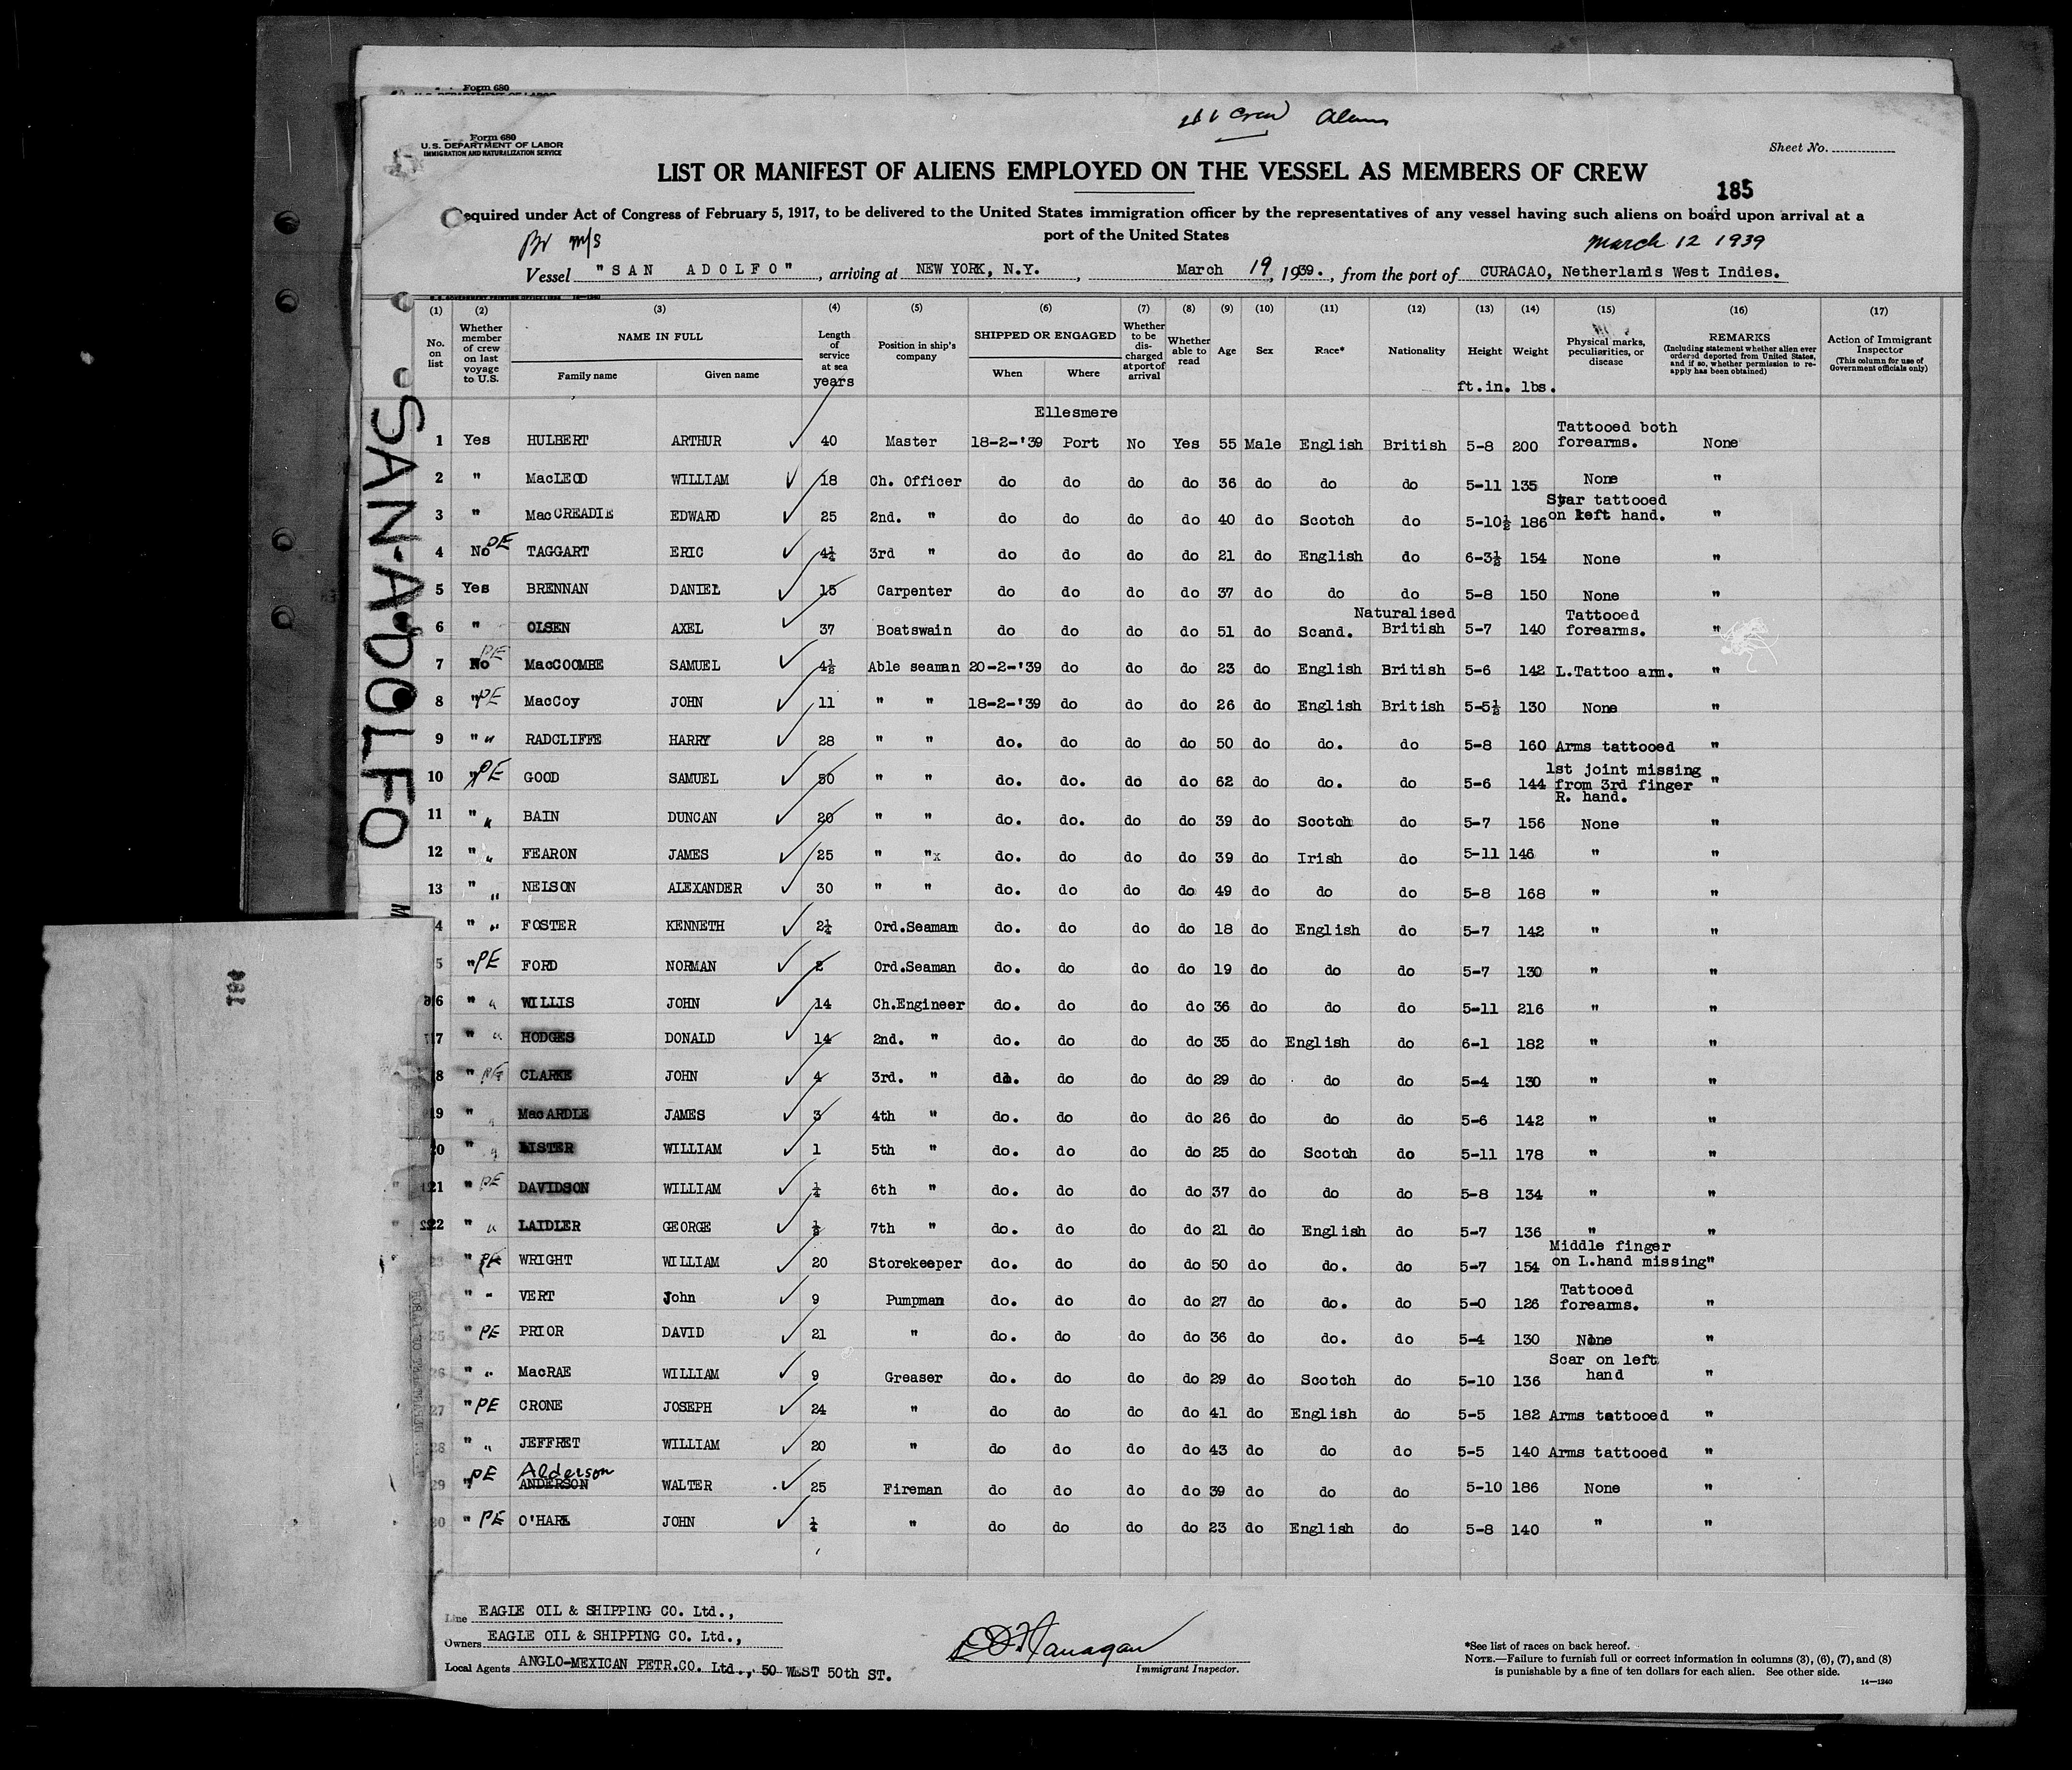 Form 680
Form 680
U.S. DEPARTMENT OF LABOR
IMMIGRATION AND NATURALIZATION SERVICE
Crew Aliens
Sheet No.
LIST OR MANIFEST OF ALIENS EMPLOYED ON THE VESSEL AS MEMBERS OF CREW
185
equired under Act of Congress of February 5, 1917, to be delivered to the United States immigration officer by the representatives of any vessel having such aliens on board upon arrival at a
port of the United States
Br m/s
March 12 1939
Vessel "SAN ADOLFO", arriving at NEW YORK, N.Y., March 19, 1939., from the port of CURACAO, Netherlands West Indies.
(1) (2) (3) (4) (5) (6) (7) (8) (9) (10) (11) (12) (13) (14) (15) (16) (17)
No. on list
Whether member of crew on last voyage to U.S.
NAME IN FULL
Family name
Given name
Length of service at sea
years
Position in ship's company
SHIPPED OR ENGAGED
When
Where
Whether to be discharged at port of arrival
Whether able to read
Age
Sex
Race*
Nationality
Height
ft.in.
Weight
lbs.
Physical marks, peculiarities, or disease
REMARKS
(Including statement whether alien ever ordered deported from United States, and if so, whether permission to re-apply has been obtained)
Action of Immigrant Inspector
(This column for use of Government officials only)
1 Yes HULBERT ARTHUR 40 Master 18-2-'39 Ellesmere Port No Yes 55 Male English British 5-8 200 Tattooed both forearms. None
2 " MacLEOD WILLIAM 18 Ch. Officer do do do do 36 do do do 5-11 135 None "
3 " MacCREADIE EDWARD 25 2nd. " do do do do 40 do Scotch do 5-10½ 186 Star tattooed on left hand. "
4 No PE TAGGART ERIC 4¼ 3rd " do do do do 21 do English do 6-3½ 154 None "
5 Yes BRENNAN DANIEL 15 Carpenter do do do do 37 do do do 5-8 150 None "
6 " OLSEN AXEL 37 Boatswain do do do do 51 do Scand. Naturalised British 5-7 140 Tattooed forearms. "
7 No PE MacCOOMBE SAMUEL 4½ Able seaman 20-2-'39 do do do 23 do English British 5-6 142 L.Tattoo arm. "
8 " PE MacCoy JOHN 11 " " 18-2-'39 do do do 26 do English British 5-5½ 130 None "
9 " " RADCLIFFE HARRY 28 " " do. do do do 50 do do. do 5-8 160 Arms tattooed "
10 " PE GOOD SAMUEL 50 " " do. do. do do 62 do do. do 5-6 144 1st joint missing from 3rd finger R. hand. "
11 " " BAIN DUNCAN 20 " " do. do. do do 39 do Scotch do 5-7 156 None "
12 " " FEARON JAMES 25 " "x do. do do do 39 do Irish do 5-11 146 " "
13 " " NELSON ALEXANDER 30 " " do. do do do 49 do do do 5-8 168 " "
4 " " FOSTER KENNETH 2¼ Ord.Seaman do. do do do 18 do English do 5-7 142 " "
5 " PE FORD NORMAN 2 Ord.Seaman do. do do do 19 do do do 5-7 130 " "
16 " " WILLIS JOHN 14 Ch.Engineer do. do do do 36 do do do 5-11 216 " "
17 " " HODGES DONALD 14 2nd. " do. do do do 35 do English do 6-1 182 " "
8 " PE CLARKE JOHN 4 3rd. " do. do do do 29 do do do 5-4 130 " "
19 " " MacARDLE JAMES 3 4th " do. do do do 26 do do do 5-6 142 " "
20 " " LISTER WILLIAM 1 5th " do. do do do 25 do Scotch do 5-11 178 " "
21 " PE DAVIDSON WILLIAM ¼ 6th " do. do do do 37 do do do 5-8 134 " "
22 " " LAIDLER GEORGE ½ 7th " do. do do do 21 do English do 5-7 136 " "
23 " PE WRIGHT WILLIAM 20 Storekeeper do. do do do 50 do do. do 5-7 154 Middle finger on L.hand missing "
" " VERT John 9 Pumpman do. do do do 27 do do. do 5-0 126 Tattooed forearms. "
25 " PE PRIOR DAVID 21 " do. do do do 36 do do. do 5-4 130 None "
26 " " MacRAE WILLIAM 9 Greaser do. do do do 29 do Scotch do 5-10 136 Scar on left hand "
27 " PE CRONE JOSEPH 24 " do do do do 41 do English do 5-5 182 Arms tattooed "
28 " " JEFFRET WILLIAM 20 " do do do do 43 do do do 5-5 140 Arms tattooed "
29 " PE Alderson ANDERSON WALTER 25 Fireman do do do do 39 do do do 5-10 186 None "
30 " PE O'HARE JOHN ¼ " do do do do 23 do English do 5-8 140 " "
SAN-ADOLFO
Line EAGLE OIL & SHIPPING CO. Ltd.,
Owners EAGLE OIL & SHIPPING CO. Ltd.,
Local Agents ANGLO-MEXICAN PETR.CO. Ltd., 50 WEST 50th ST.
Flanagan
Immigrant Inspector.
*See list of races on back hereof.
NOTE.—Failure to furnish full or correct information in columns (3), (6), (7), and (8)
is punishable by a fine of ten dollars for each alien. See other side.
14—1240